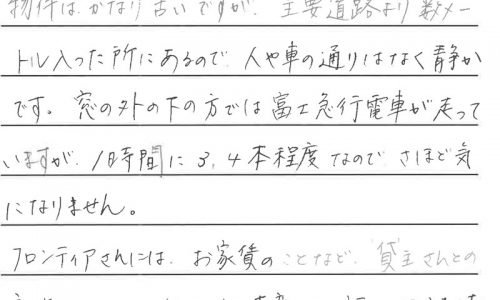 物件は、かなり古いですが、主要道路より数メー
トル入った所にあるので、人や車の通りはなく静か
です。窓の外の下の方では富士急行電車が走って
いますが、1時間に3,4本程度なので、さほど気
になりません。
フロンティアさんには、お家賃のことなど、貸主さんとの